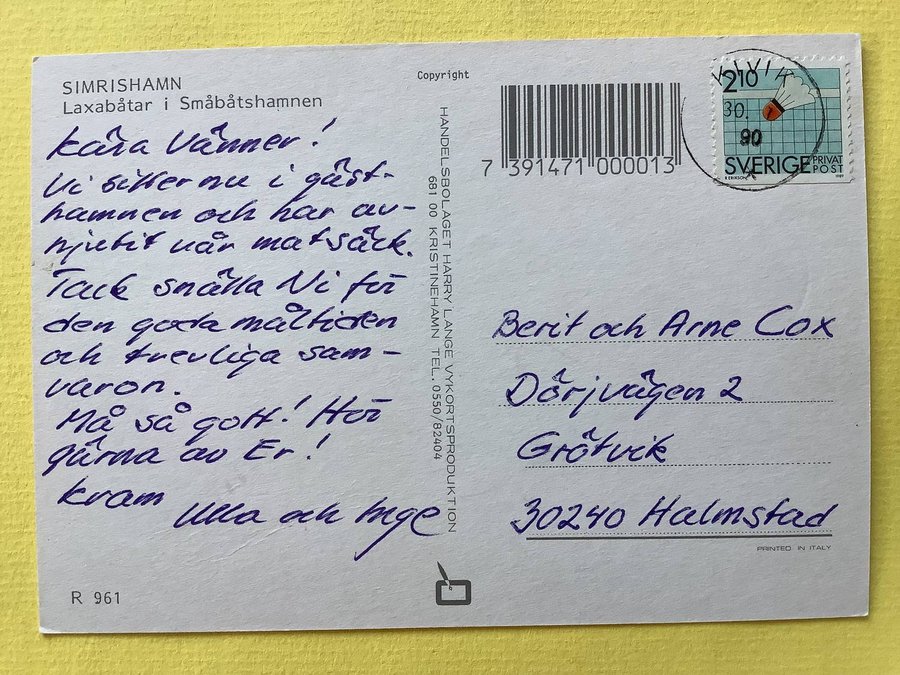 SIMRISHAMN
Laxabåtar i Småbåtshamnen
Kära Vänner!
Vi sitter nu i gäst-
hamnen och har av-
njutit vår matsäck.
Tack snälla Ni för
den goda måltiden
och trevliga sam-
varon.
Må så gott! Hör
gärna av Er!
Kram
Ulla och Inge
R 961
Copyright
HANDELSBOLAGET HARRY LANGE VYKORTSPRODUKTION
681 00 KRISTINEHAMN TEL. 0550/82404
7 391471 000013
KIVIK
30.
90
210
SVERIGE PRIVAT
POST
Berit och Arne Cox
Dörjvägen 2
Grötvik
30240 Halmstad
PRINTED IN ITALY